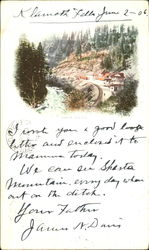 Klamath Falls, June 2-06
I wrote you a good long
letter and enclosed it to
Mamma today.
We can see Shasta
Mountain, every day when
out on the ditch.
Your Father
James N. Davis